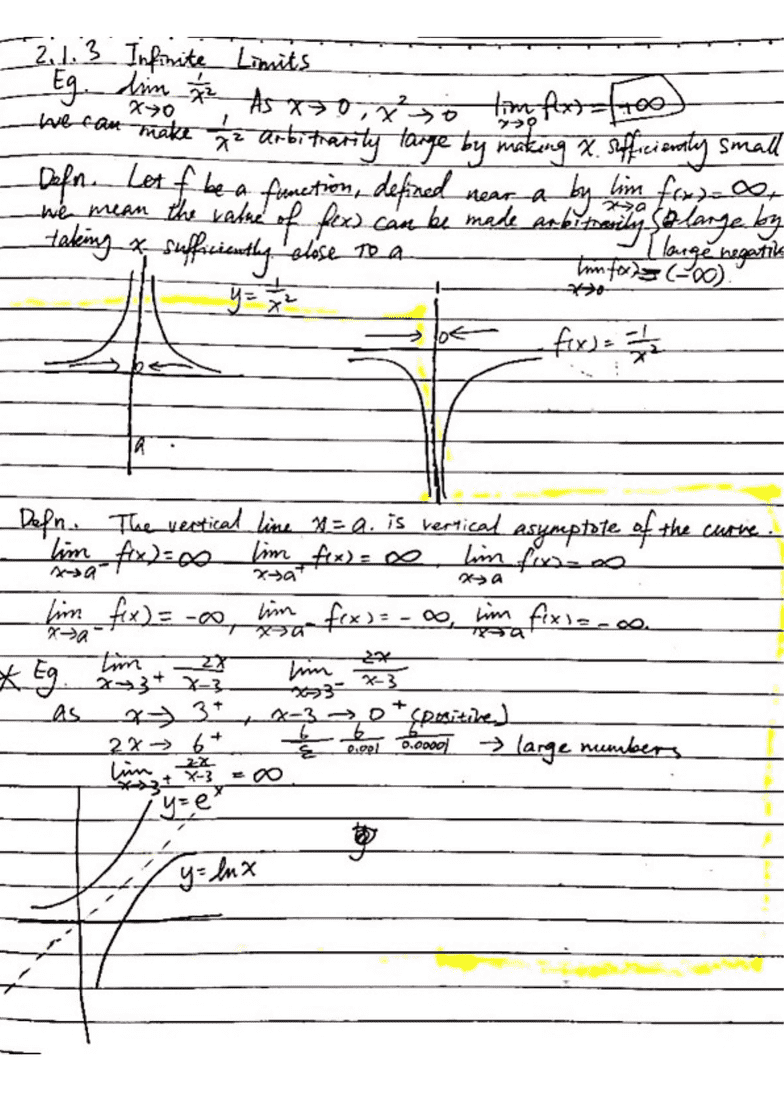 2.1.3 Infinite Limits
Eg. lim x→0 1/x² As x→0, x²→0 lim x→0 f(x) = +∞
we can make 1/x² arbitrarily large by making x sufficiently small
Defn. Let f be a function, defined near a by lim x→a f(x) = ∞.
we mean the value of f(x) can be made arbitrarily { large by
taking x sufficiently close to a { large negative
lim x→0 f(x) = (-∞).
y = 1/x²
0
f(x) = -1/x²
0
a
Defn. The vertical line x = a. is vertical asymptote of the curve.
lim x→a⁻ f(x) = ∞ lim x→a⁺ f(x) = ∞, lim x→a f(x) = ∞
lim x→a⁻ f(x) = -∞, lim x→a⁻ f(x) = -∞, lim x→a f(x) = -∞.
* Eg. lim x→3⁺ 2x/x-3 lim x→3⁻ 2x/x-3
as x→3⁺, x-3→0⁺ (positive)
2x→6⁺ 6/ 6/0.001 6/0.00001 → large numbers
lim x→3⁺ 2x/x-3 = ∞
y = eˣ
y = ln x